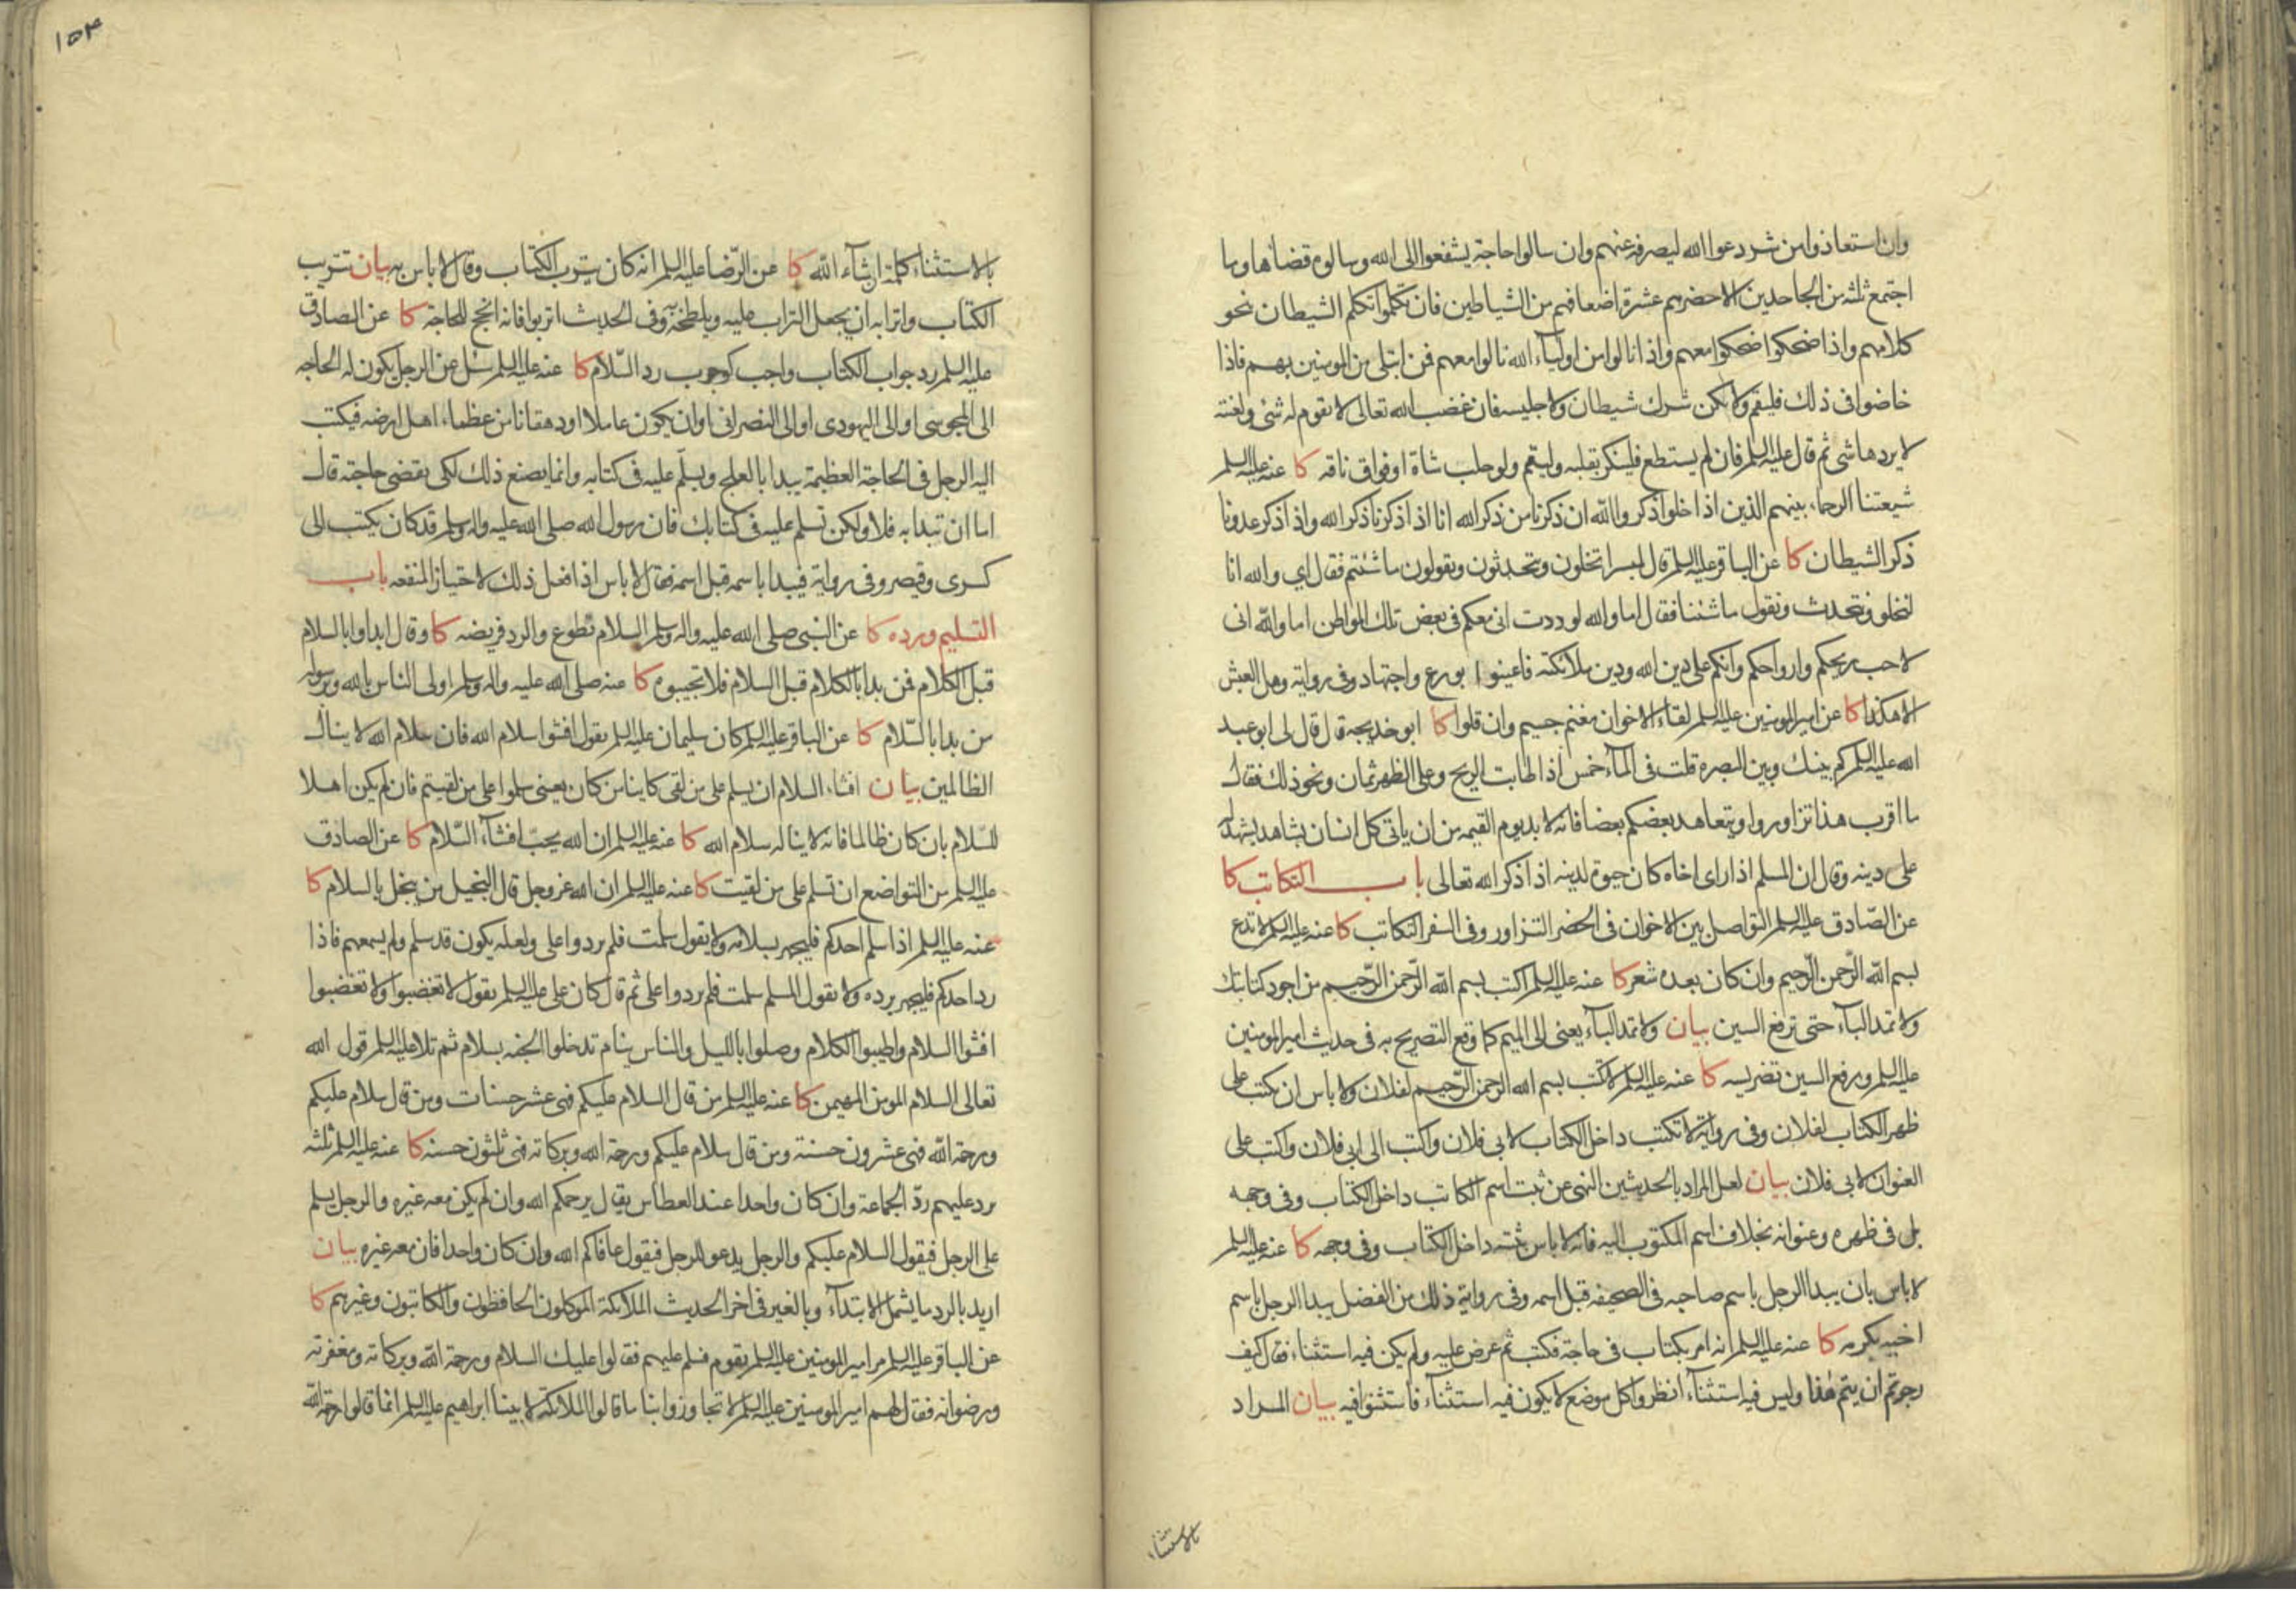 وان استعاذوا من شر دعوا الله ليصرفه عنهم وان سالوا حاجة يشفعوا الى الله وسالوه قضاها وما
اجتمع ثلثه من الجاحدين الا حضرهم عشرة اضعافهم من الشياطين فان تكلموا تكلم الشيطان بنحو
كلامهم واذا ضحكوا ضحكوا معهم واذا نالوا من اولياء الله نالوا معهم فمن ابتلى من المومنين بهم فاذا
خاضوا فى ذلك فليقم ولا يكن شرك شيطان ولا جليسه فان غضب الله تعالى لا يقوم له شئ ولعنته
لا يردها شى ثم قال عليه السلم فان لم يستطع فلينكر بقلبه وليقم ولو حلب شاة او فواق ناقه كا عنه عليه السلم
شيعتنا الرحماء بينهم الذين اذا خلوا ذكروا الله ان ذكرنا من ذكر الله انا اذا ذكرنا ذكر الله واذا ذكر عدونا
ذكر الشيطان كا عن الباقر عليه السلم قال لميسر اتخلون وتحدثون وتقولون ما شئتم فقال اي والله انا
لنخلو ونتحدث ونقول ما شئنا فقال اما والله لوددت انى معكم فى بعض تلك المواطن اما والله انى
لاحب ريحكم وارواحكم وانكم على دين الله ودين ملائكته فاعينوا بورع واجتهاد وفى رواية وهل العيش
الا هكذا كا عن امير المومنين عليه السلم لقاء الاخوان مغنم جسيم وان قلوا كا ابو خديجه قال قال لى ابو عبد
الله عليه السلم كم بينك وبين البصره قلت فى الماء خمس اذا طابت الريح وعلى الظهر ثمان ونحو ذلك فقال
ما اقرب هذا تزاوروا ويتعاهد بعضكم بعضا فانه لا بد يوم القيمه من ان ياتى كل انسان بشاهد يشهد له
على دينه وقال ان المسلم اذا راى اخاه كان حيوة لدينه اذا ذكر الله تعالى باب التكاتب كا
عن الصادق عليه السلم التواصل بين الاخوان فى الحضر التزاور وفى السفر التكاتب كا عنه عليه السلم لا تدع
بسم الله الرحمن الرحيم وان كان بعده شعر كا عنه عليه السلم اكتب بسم الله الرحمن الرحيم من اجود كتابتك
ولا تمد الباء حتى ترفع السين بيان ولا تمد الباء يعنى الى الميم كما وقع التصريح به فى حديث امير المومنين
عليه السلم ورفع السين تضريسه كا عنه عليه السلم لا تكتب بسم الله الرحمن الرحيم لفلان ولا باس ان تكتب على
ظهر الكتاب لفلان وفى رواية لا تكتب داخل الكتاب لابى فلان واكتب الى ابى فلان واكتب على
العنوان لابى فلان بيان لعل المراد بالحديثين النهى عن ثبت اسم الكاتب داخل الكتاب وفى وجهه
بل فى ظهره وعنوانه بخلاف اسم المكتوب اليه فانه لا باس بثبته داخل الكتاب وفى وجهه كا عنه عليه السلم
لا باس بان يبدا الرجل باسم صاحبه فى الصحيفه قبل اسمه وفى رواية ذلك من الفضل يبدا الرجل باسم
اخيه يكرمه كا عنه عليه السلم انه امر بكتاب فى حاجة فكتب ثم عرض عليه ولم يكن فيه استثناء فقال كيف
رجوتم ان يتم هذا وليس فيه استثناء انظروا كل موضع لا يكون فيه استثناء فاستثنوا فيه بيان المراد
بالاستثناء
١٥٣
بالاستثناء كلمة ان شاء الله كا عن الرضا عليه السلم انه كان يترب الكتاب وقال لا باس به بيان تتريب
الكتاب واترابه ان يجعل التراب عليه ويلطخه به وفى الحديث اتربوا فانه انجح للحاجة كا عن الصادق
عليه السلم رد جواب الكتاب واجب كوجوب رد السلام كا عنه عليه السلم سئل عن الرجل يكون له الحاجه
الى المجوسى او الى اليهودى او الى النصرانى او ان يكون عاملا او دهقانا من عظماء اهل ارضه فيكتب
اليه الرجل فى الحاجة العظيمة يبدا بالعلج ويسلم عليه فى كتابه وانما يصنع ذلك لكى يقضى حاجته قال
اما ان تبدا به فلا ولكن تسلم عليه فى كتابك فان رسول الله صلى الله عليه واله وسلم قد كان يكتب الى
كسرى وقيصر وفى رواية فيبدا باسمه قبل اسمه فقال لا باس اذا فعل ذلك لاختيار المنفعه باب
التسليم ورده كا عن النبى صلى الله عليه واله وسلم السلام تطوع والرد فريضه كا وقال ابداوا بالسلام
قبل الكلام فمن بدا بالكلام قبل السلام فلا تجيبوه كا عنه صلى الله عليه واله وسلم اولى الناس بالله وبرسوله
من بدا بالسلام كا عن الباقر عليه السلم كان سليمان عليه السلم يقول افشوا سلام الله فان سلام الله لا ينال
الظالمين بيان افشاء السلام ان يسلم على من لقى كاينا من كان يعنى سلموا على من لقيتم فان لم يكن اهلا
للسلام بان كان ظالما فانه لا يناله سلام الله كا عنه عليه السلم ان الله يحب افشاء السلام كا عن الصادق
عليه السلم من التواضع ان تسلم على من لقيت كا عنه عليه السلم ان الله عز وجل قال البخيل من يبخل بالسلام كا
عنه عليه السلم اذا سلم احدكم فليجهر بسلامه ولا يقول سلمت فلم يردوا على ولعله يكون قد سلم ولم يسمعهم فاذا
رد احدكم فليجهر برده ولا يقول المسلم سلمت فلم يردوا على ثم قال كان على عليه السلم يقول لا تغضبوا ولا تغضبوا
افشوا السلام واطيبوا الكلام وصلوا بالليل والناس ينام تدخلوا الجنه بسلام ثم تلا عليه السلم قول الله
تعالى السلام المومن المهيمن كا عنه عليه السلم من قال السلام عليكم فهى عشر حسنات ومن قال سلام عليكم
ورحمة الله فهى عشرون حسنة ومن قال سلام عليكم ورحمة الله وبركاته فهى ثلثون حسنه كا عنه عليه السلم ثلثه
يرد عليهم رد الجماعة وان كان واحدا عند العطاس يقال يرحمكم الله وان لم يكن معه غيره والرجل يسلم
على الرجل فيقول السلام عليكم والرجل يدعو للرجل فيقول عافاكم الله وان كان واحدا فان معه غيره بيان
اريد بالرد ما يشمل الابتداء وبالغير فى اخر الحديث الملائكة الموكلون الحافظون والكاتبون وغيرهم كا
عن الباقر عليه السلم مر امير المومنين عليه السلم بقوم فسلم عليهم فقالوا عليك السلام ورحمة الله وبركاته ومغفرته
ورضوانه فقال لهم امير المومنين عليه السلم لا تجاوزوا بنا ما قالوا الملائكة لابينا ابراهيم عليه السلم انما قالوا رحمة الله